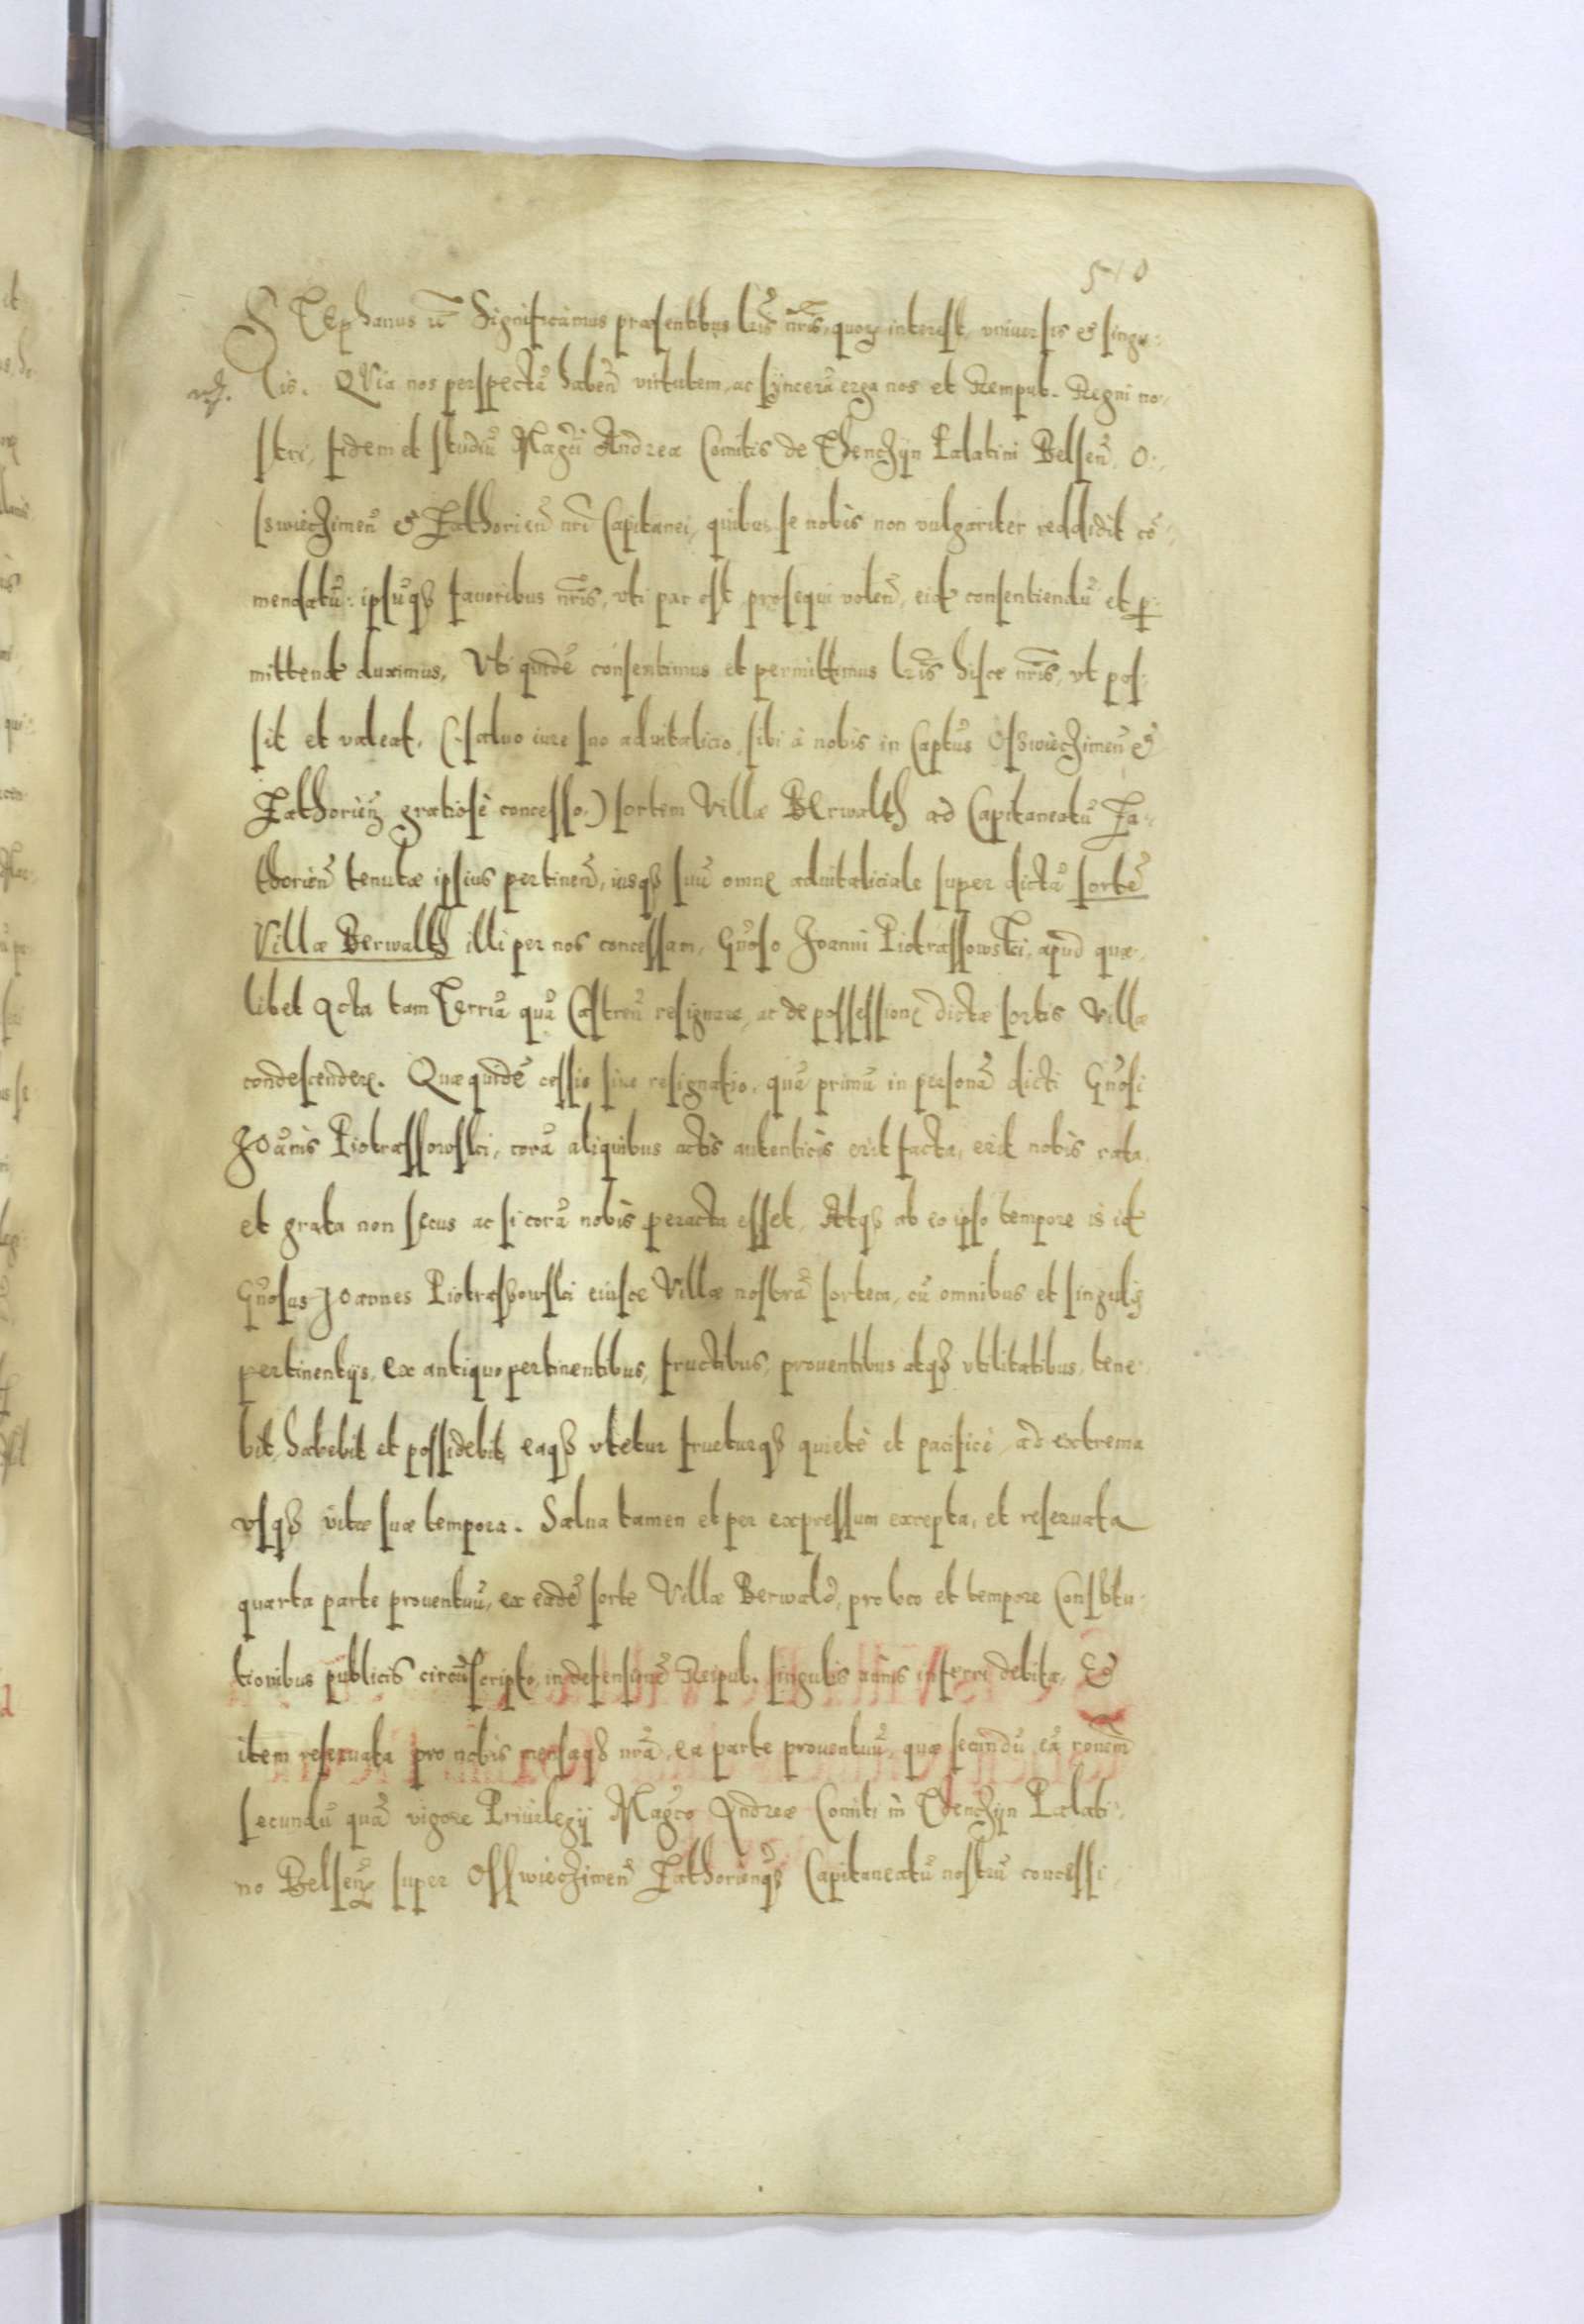 510
STEphanus etc̃ Significamus præsentibus lr̃is nr̃is, quorum interest, vniuersis & singu:
lis. QVia nos perspectã habeñ virtutem, ac sÿncerã erga nos et Rempub. Regni no:
stri, fidem et studiũ Mag̃ci Andreæ Comitis de Thenczÿn Palatini Belseñ, O:
swieczimeñ & Zathorieñ nr̃i Capitanei, quibus se nobis non vulgariter reddidit cõ:
mendatũ: ipsũq₃ fauoribus nr̃is, vti par est prosequi voleñ, eid consentiendũ et p̱:
mittend duximus, Vti quidẽ consentimus et permittimus lr̃is hisce nr̃is, vt pos:
sit et valeat, (saluo iure suo aduitalicio, sibi à nobis in Captũs Osswieczimeñ &
Zathorieñ gratiosè concesso,) sortem Villæ BErwalth ad Capitaneatũ Za:
thorieñ tenutæ ipsius pertineñ, iusq₃ suũ omne aduitaliciale super dictã sortẽ
Villæ Berwalth illi per nos concessam, Gñoso Joanni Piotrassowski, apud quæ:
libet Acta tam Terrĩa quã Castreñ resignare, ac de possessione dictæ sortis Villæ
condescendere. Quæquidẽ cessio siue resignatio, quã primũ in personã dicti Gñosi
JOãnis Piotrassowski, corã aliquibus actis autenticis erit facta, erit nobis rata,
et grata non secus ac si corã nobis peracta esset, Atq₃ ab eo ipso tempore is id
Gñosus JOannes Piotrasḣowski eiusce Villæ nostrã sortem, cũ omnibus et singulis
pertinentÿs, ex antiquo pertinentibus, fructibus, prouentibus atq₃ vtilitatibus, tene:
bit, habebit et possidebit, eaq₃ vtetur frueturq₃ quietè et pacificè, ad extrema
vsq₃ vitæ suæ tempora. Salua tamen et per expressum excepta, et reseruata
quarta parte prouentuũ, ex eadẽ sorte Villæ Berwald, pro loco et tempore Constitu:
tionibus publicis circũscripto, in defensionẽ Reipub. singulis annis inferri debita, &
item reseruata pro nobis mensaq₃ nr̃a, ea parte prouentuũ, quæ secundũ eã rõnem
secundũ quã vigore Priuilegÿ Mag̃co Andreæ Comiti in Thenczÿn Palati:
no Belseñ super Osswieczimeñ Zathorienq₃ Capitaneatũ nostrũ concessi,